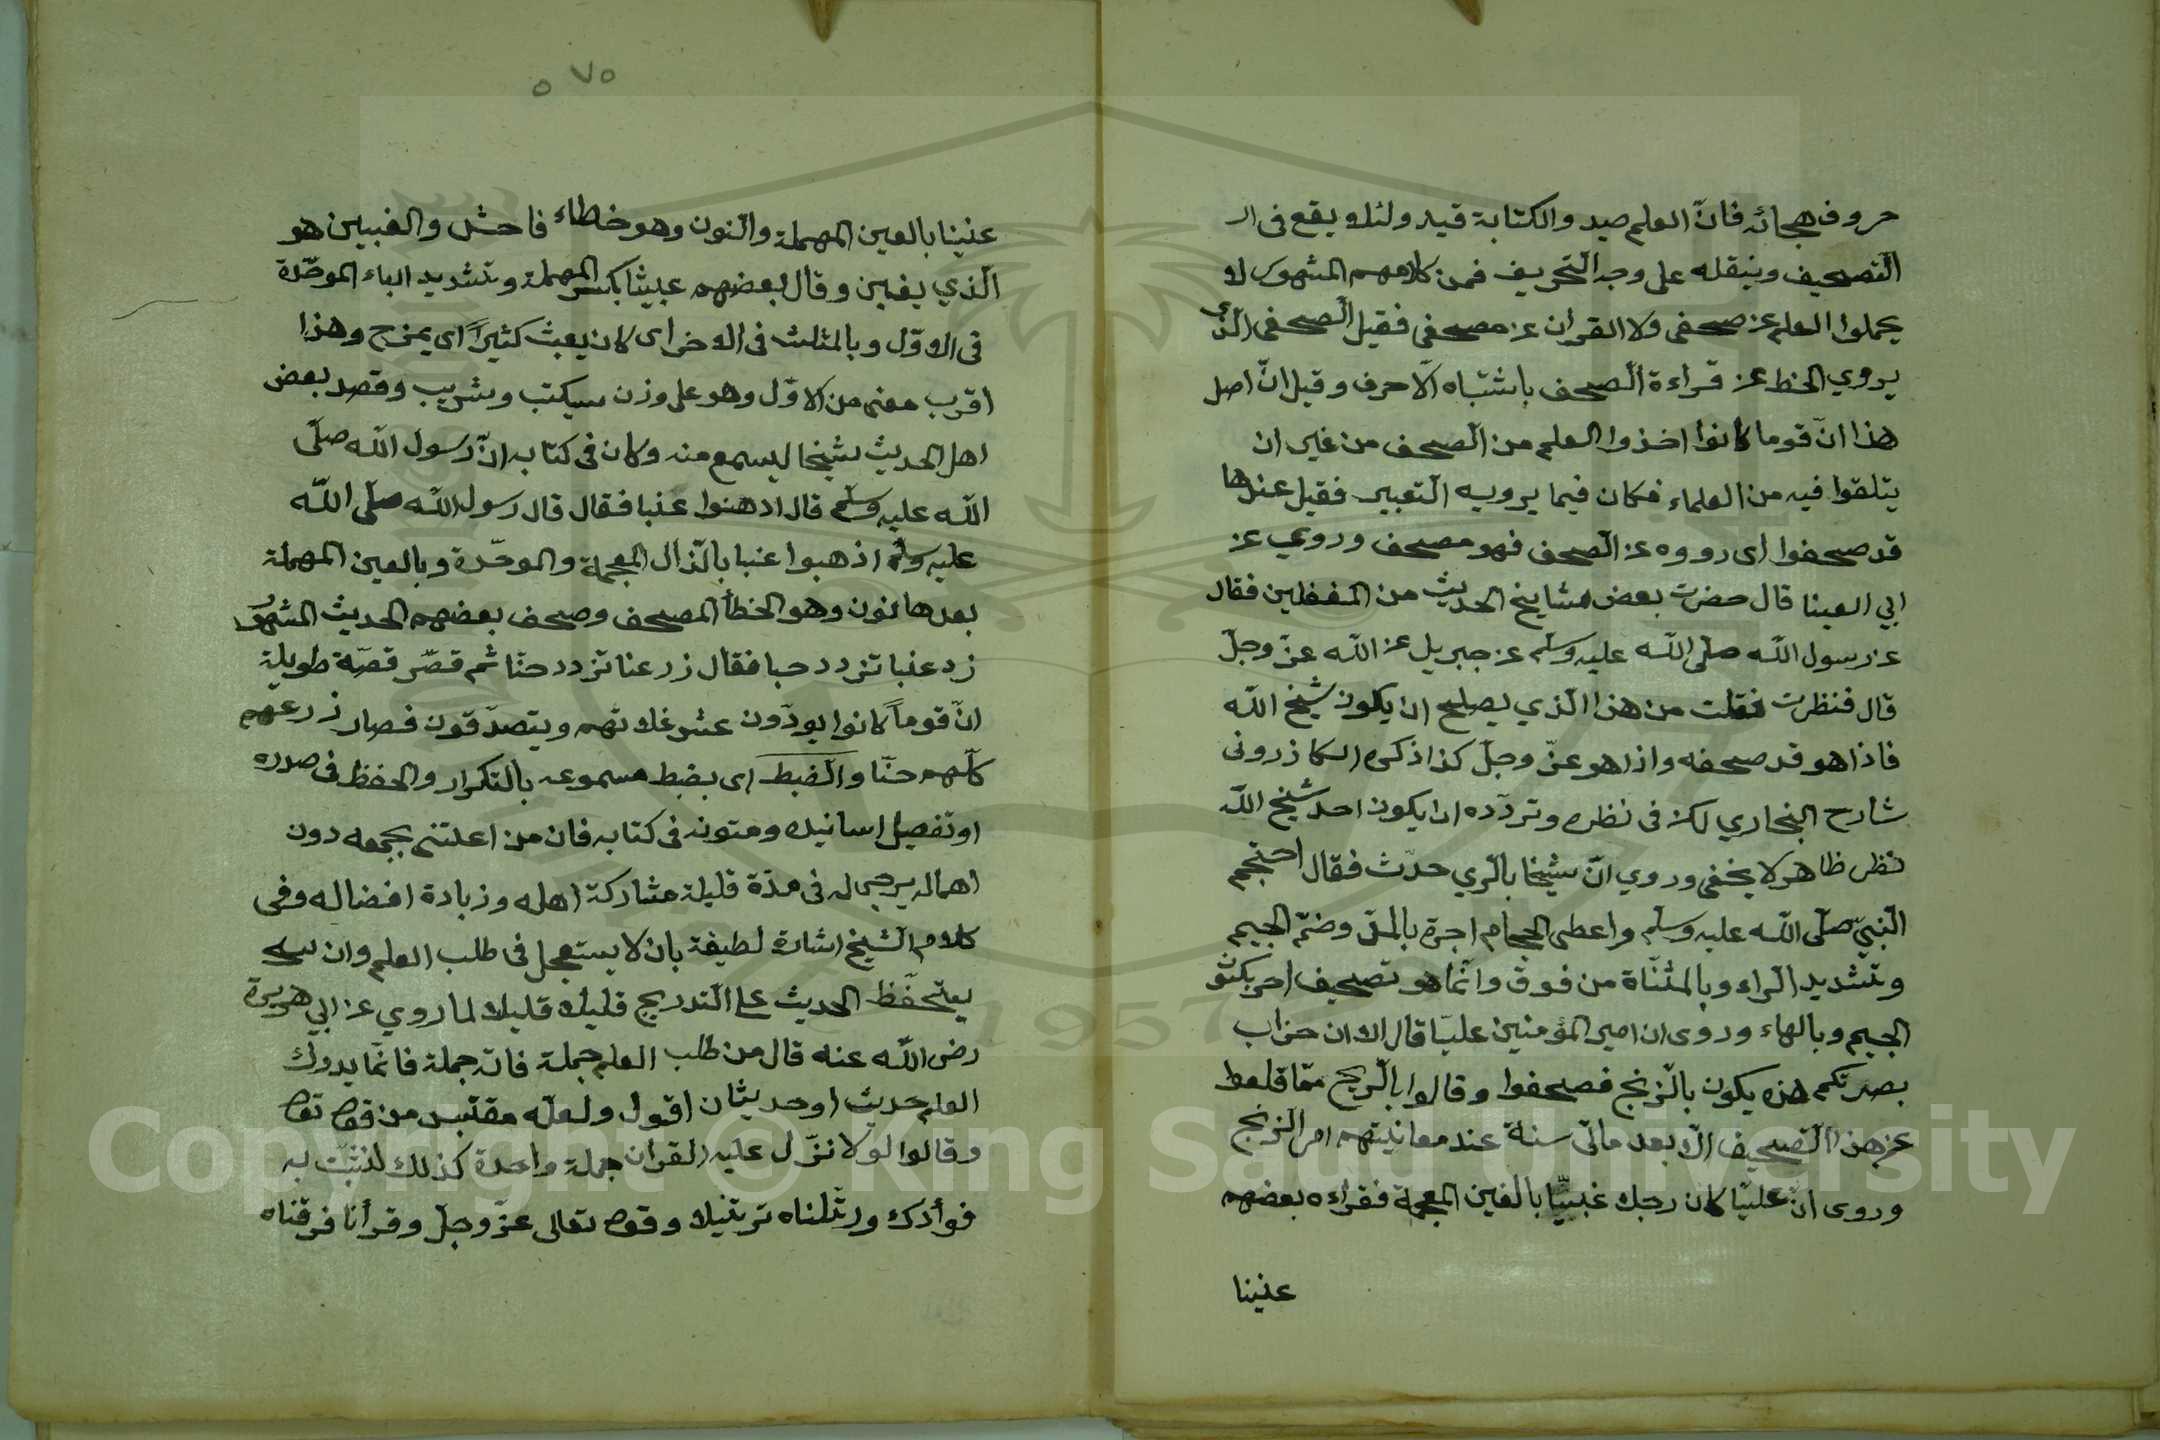 حروف هجائه فانّ العلم صيد والكتابة قيد ولئلا يقع في الـ
التصحيف وينقله على وجه التحريف فمن كلامهم المشهور لا
تحملوا العلم عن صحفى ولا القران عن مصحفى فقيل الصحفى الذي
يروي الخطا عن قراءة الصحف باشتباه الاحرف وقيل انّ اصل
هذا انّ قوما كانوا اخذوا العلم من الصحف من غير ان
يتلقوا فيه من العلماء فكان فيما يرويه التغيير فقيل عندها
قد صحفوا اى رووه عن الصحف فهو مصحف وروي عن
ابي العينا قال حضرت بعض مشايخ الحديث من المغفلين فقال
عن رسول الله صلى الله عليه وسلم عن جبريل عن الله عزّ وجلّ
قال فنظرت فقلت من هذا الذي يصلح ان يكون شيخ الله
فاذا هو قد صحفه واذا هو عزّ وجلّ كذا ذكره الكازرونى
شارح البخاري لكن فى نظره وتردّده ان يكون احد شيخ الله
نظر ظاهر لا يخفى وروي انّ شيخا بالري حدّث فقال احتجم
النبيّ صلّى الله عليه وسلم واعطى الحجام اجرة بالمدّ وضمّ الجيم
وتشديد الراء وبالمثنّاة من فوق وانّما هو تصحيف اجره بكون
الجيم وبالهاء وروى ان امير المؤمنين عليّا قال الا ان خراب
بصرتكم هذه يكون بالزنج فصحفوا وقالوا بالريح ممّا قلعوا
عن هذا التصحيف الّا بعد ماتى سنة عند معاينتهم امر الزنج
وروى انّ عليّا كان رجلا غبينا بالغين المعجمة فقراءه بعضهم
عنينا
٧٥
عنينا بالعين المهملة والنون وهو خطاء فاحش والغبين هو
الّذي يغبن وقال بعضهم عبيثا بكسر المهملة وتشديد الباء الموحّدة
فى الاوّل وبالمثلث فى الاخر اى كان يعبث كثيراً اى يمزح وهذا
اقرب معنى من الاوّل وهو على وزن سكيت وشريب وقصد بعض
اهل الحديث شيخا ليسمع منه وكان فى كتابه انّ رسول الله صلّى
الله عليه وسلم قال ادهنوا غبا فقال قال رسول الله صلى الله
عليه وسلم اذهبوا عنبا بالذال المعجمة والموحّدة وبالعين المهملة
بعدها نون وهو الخطأ المصحف وصحف بعضهم الحديث المشهور
زر غبا تزدد حبا فقال زرعنا تزدد حنّا ثم قصّر قصّة طويلة
انّ قوماً كانوا يودّون عشر غلاتهم ويتصدّقون فصار زرعهم
كلّهم حنّا والضبط اى يضبط مسموعه بالتكرار والحفظ فى صدره
او تفصيل اسانيده ومتونه فى كتابه فان من اعتنى بجمعه دون
اهماله يرجى له فى مدّة قليلة مشاركة اهله وزيادة افضاله وفى
كلام الشيخ اشارة لطيفة بان لا يستعجل فى طلب العلم وان
يتحفّظ الحديث على التدريج قليلا قليلا لما روي عن ابي هريرة
رضى الله عنه قال من طلب العلم جملة فاته جملة فانّما يدرك
العلم حديث او حديثان اقول ولعله مقتبس من قوله تعا
وقالوا لولا نزّل عليه القران جملة واحدة كذلك لنثبّت به
فؤادك ورتّلناه ترتيلا وقوله تعالى عزّ وجلّ وقرأنا فرقناه
1957
Copyright © King Saud University